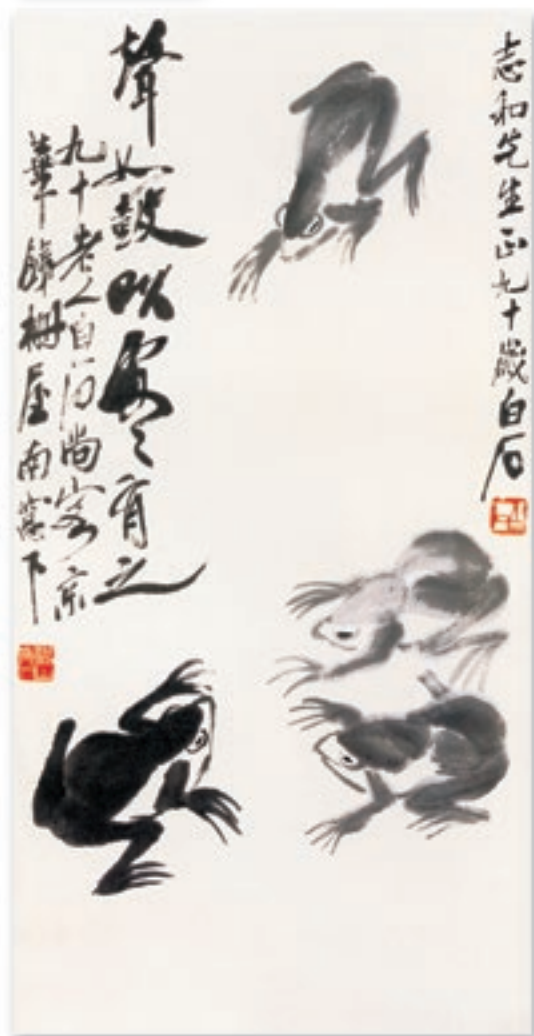 志和先生正九十歲白石
聲如鼓吹處々有之
九十老人白石尚客京
華鐵柵屋南窗下